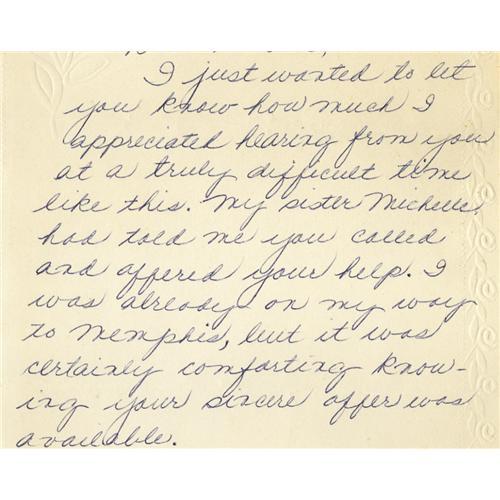 I just wanted to let
you know how much I
appreciated hearing from you
at a truly difficult time
like this. My sister Michelle,
had told me you called
and offered your help. I
was already on my way
to Memphis, but it was
certainly comforting know-
ing your sincere offer was
available.